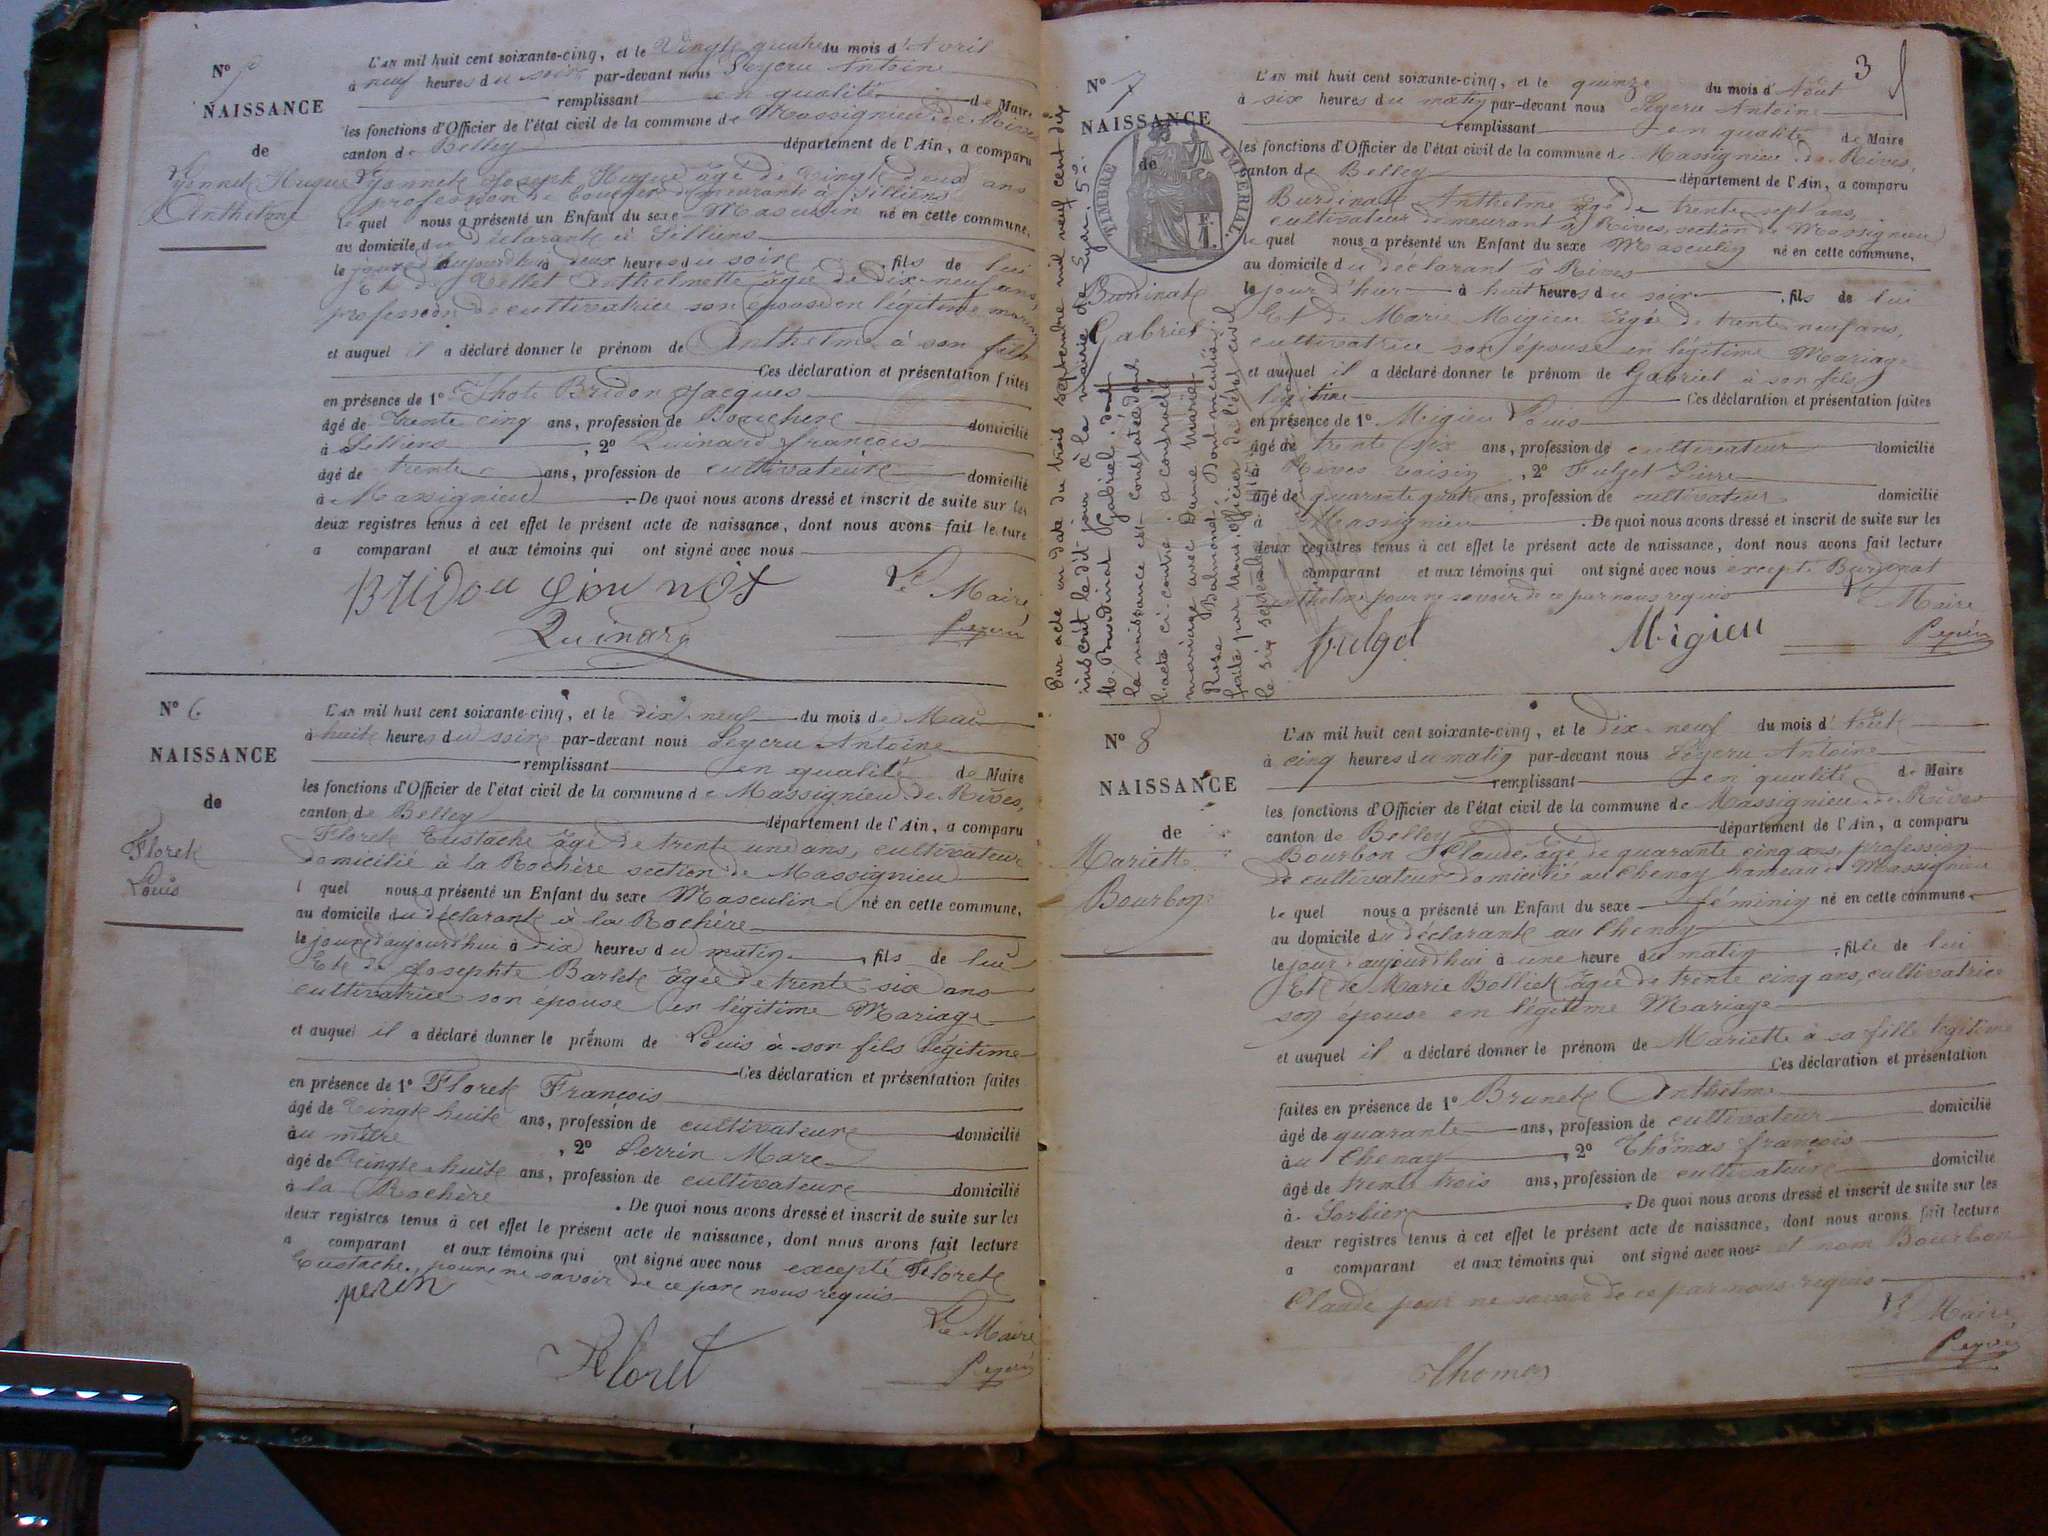 N° 5
NAISSANCE
de
Gonnet Hugue
Anthelme
L'AN mil huit cent soixante-cinq, et le Vingt quatre du mois d'Avril
à neuf heures du soir par-devant nous Peyeru Antoine
remplissant en qualité de Maire
les fonctions d'Officier de l'état civil de la commune de Massignieu de Rives
canton de Belley département de l'Ain, a comparu
Gonnet Joseph Hugue âgé de Vingt deux ans
profession de demeurant à Silliens
le quel nous a présenté un Enfant du sexe Masculin né en cette commune,
au domicile du déclarant à Silliens
le jour d'aujourdhui à deux heures du soir, fils de lui
Et de Vellet Anthelmette âgée de dix-neuf ans,
profession de cultivatrice son épouse en légitime
et auquel il a déclaré donner le prénom de Anthelme à son fils
Ces déclaration et présentation faites
en présence de 1° Bridon Jacques
âgé de Trente cinq ans, profession de domicilié
à Silliens, 2° Quinard françois
âgé de trente ans, profession de cultivateur domicilié
à Massignieu. De quoi nous avons dressé et inscrit de suite sur les
deux registres tenus à cet effet le présent acte de naissance, dont nous avons fait lecture
a comparant et aux témoins qui ont signé avec nous
Le Maire
Quinard
Peyeru
N° 6
NAISSANCE
de
Floret
Louis
L'AN mil huit cent soixante-cinq, et le dix-neuf du mois de Mai
à huit heures du soir par-devant nous Peyeru Antoine
remplissant en qualité de Maire
les fonctions d'Officier de l'état civil de la commune de Massignieu de Rives,
canton de Belley département de l'Ain, a comparu
Floret Eustache âgé de trente un ans, cultivateur
domicilié à la Rochère section de Massignieu
l quel nous a présenté un Enfant du sexe Masculin né en cette commune,
au domicile du déclarant à la Rochère
le jour d'aujourd'hui à dix heures du matin, fils de lui
Et de Josephte Barlet âgée de trente-six ans
cultivatrice son épouse en légitime Mariage
et auquel il a déclaré donner le prénom de Louis à son fils légitime
Ces déclaration et présentation faites
en présence de 1° Floret François
âgé de Vingt huit ans, profession de cultivateur domicilié
au, 2° Perrin Marc
âgé de Vingt huit ans, profession de cultivateur domicilié
à la Rochère. De quoi nous avons dressé et inscrit de suite sur les
deux registres tenus à cet effet le présent acte de naissance, dont nous avons fait lecture
a comparant et aux témoins qui ont signé avec nous excepté Floret
Eustache, pour ne savoir de ce par nous requis
perin
Le Maire
Floret
Peyeru
3
N° 7
NAISSANCE
de
TIMBRE IMPERIAL.
Burdinat
Gabriel
L'AN mil huit cent soixante-cinq, et le quinze du mois d'Août
à six heures du matin par-devant nous Peyeru Antoine
remplissant en qualité de Maire
les fonctions d'Officier de l'état civil de la commune de Massignieu de Rives,
canton de Belley département de l'Ain, a comparu
Burdinat Anthelme âgé de trente sept ans,
cultivateur demeurant à Rives, section de Massignieu
le quel nous a présenté un Enfant du sexe Masculin né en cette commune,
au domicile du déclarant à Rives
le jour d'hier à huit heures du soir, fils de lui
Et de Marie Migieu âgée de trente neuf ans,
cultivatrice son épouse en légitime Mariage
et auquel il a déclaré donner le prénom de Gabriel à son fils
légitime Ces déclaration et présentation faites
en présence de 1° Migieu Louis
âgé de trente six ans, profession de cultivateur domicilié
à Rives voisin, 2° Fulget Pierre
âgé de quarante quatre ans, profession de cultivateur domicilié
à Massignieu. De quoi nous avons dressé et inscrit de suite sur les
deux registres tenus à cet effet le présent acte de naissance, dont nous avons fait lecture
comparant et aux témoins qui ont signé avec nous excepté Burdinat
Anthelme pour ne savoir de ce par nous requis
Maire
fulget
Migieu
Peyeru
Par acte en date du trois septembre mil neuf cent dix
inscrit le dit jour à la mairie de Lyon. 5°
M. Burdinat Gabriel, dont
la naissance est constatée dans
l'acte ci-contre a contracté
mariage avec Dame Mariet
Rose Balmond. Dont mention
faite par nous, officier de l'état civil
le six septembre
N° 8
NAISSANCE
de
Mariette
Bourbon
L'AN mil huit cent soixante-cinq, et le dix-neuf du mois d'Août
à cinq heures du matin par-devant nous Peyeru Antoine
remplissant en qualité de Maire
les fonctions d'Officier de l'état civil de la commune de Massignieu de Rives
canton de Belley département de l'Ain, a comparu
Bourbon Claude, âgé de quarante cinq ans, profession
de cultivateur domicilié au Chenay hameau de Massignieu
le quel nous a présenté un Enfant du sexe féminin né en cette commune
au domicile du déclarant au Chenay
le jour d'aujourd'hui à une heure du matin, fille de lui
Et de Marie Bolliet âgée de trente cinq ans, cultivatrice
son épouse en légitime Mariage
et auquel il a déclaré donner le prénom de Mariette à sa fille légitime
Ces déclaration et présentation
faites en présence de 1° Brunet Anthelme
âgé de quarante ans, profession de cultivateur domicilié
au Chenay, 2° Thomas françois
âgé de trente trois ans, profession de cultivateur domicilié
à Sorbier. De quoi nous avons dressé et inscrit de suite sur les
deux registres tenus à cet effet le présent acte de naissance, dont nous avons fait lecture
a comparant et aux témoins qui ont signé avec nous et non Bourbon
Claude pour ne savoir de ce par nous requis
Le Maire
Peyeru
Thomas